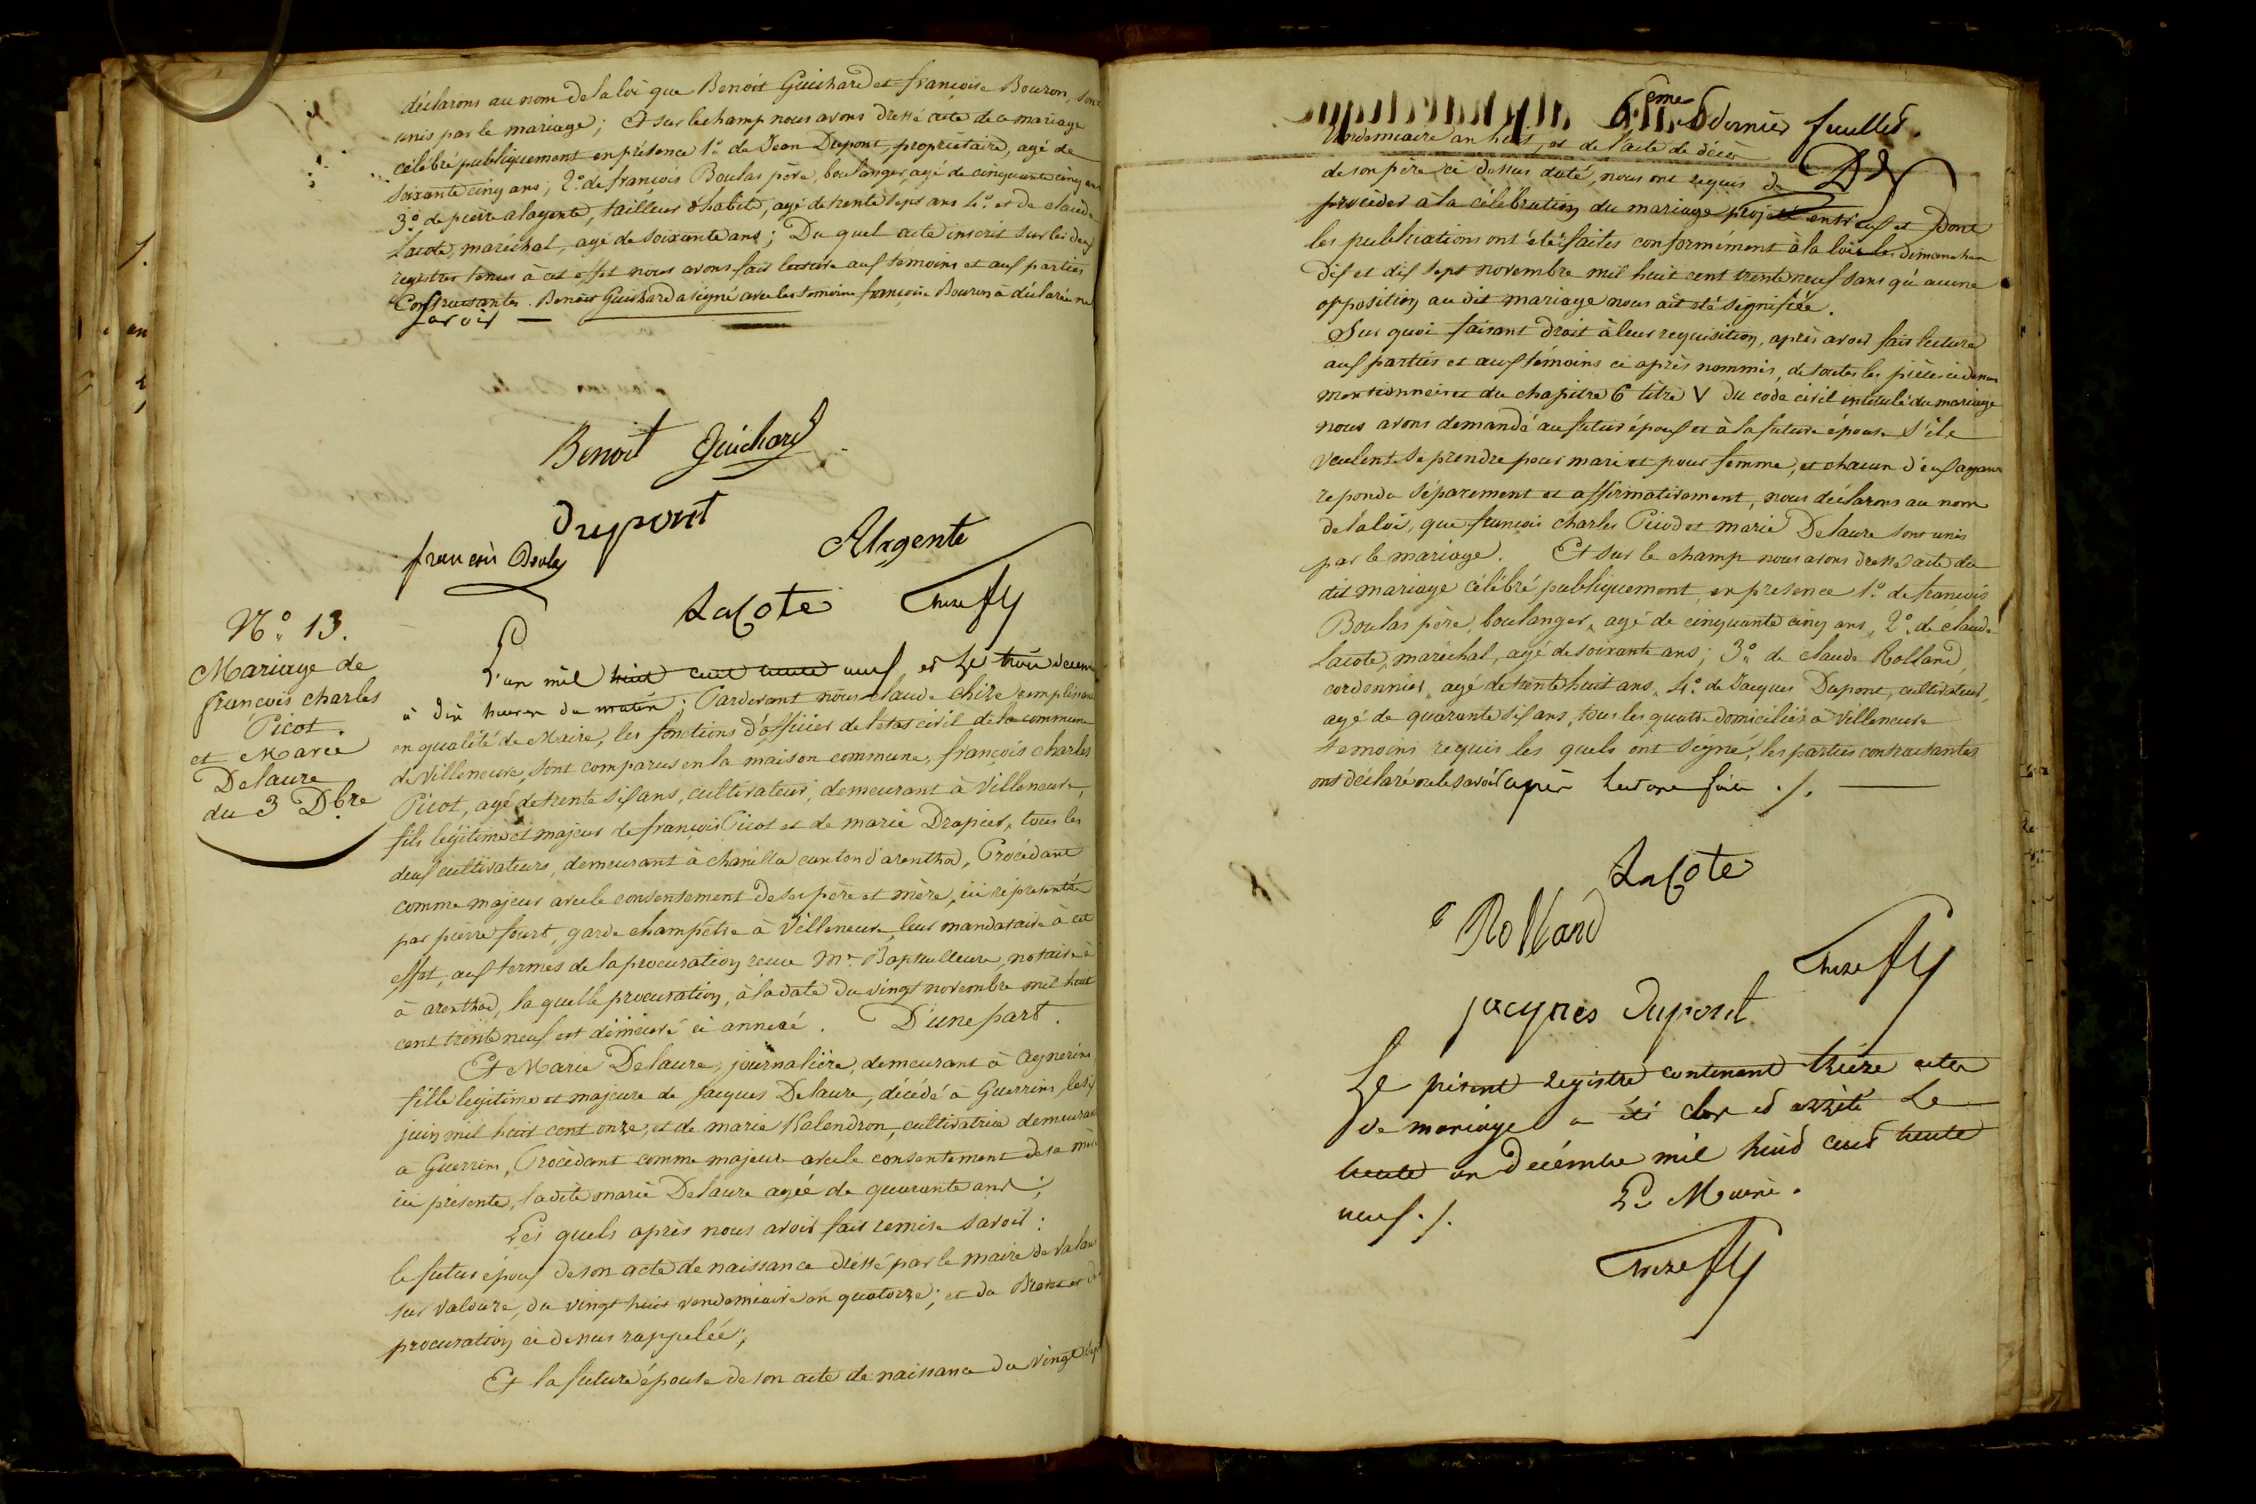 déclarons au nom de la loi que Benoit Guichard et françoise Bouron, sont
unis par le mariage; Et sur lechamp nous avons dressé acte de ce mariage
célébré publiquement en présence 1.° de Jean Dupont, propriétaire, agé de
soixante cinq ans; 2.° de françois Boulas père, boulanger, agé de cinquante cinq ans
3.° de pierre alagente, tailleur d'habits, agé de trente sept ans 4.° et de claude
Lacote, maréchal, agé de soixante ans; Du quel acte inscrit sur les deux
registres tenus à cet effet nous avons fait lecture aux témoins et aux parties
Contractantes. Benoit Guichard a signé avec les temoins françoise Bouron a déclaré ne
savoir —
Benoit Guichard
Dupont
françois Boulas
Alagente
LaCote
Chize
N.° 13.
Mariage de
françois charles
Picot.
et Marie
Delaure
du 3 D.bre
L'an mil huit cent trente neuf et le trois décembre
à dix heures du matin; Pardevant nous claude chize remplissant
en qualité de Maire, les fonctions d'officier de l'etat civil de la commune
de Villeneuve, sont comparus en la maison commune, françois charles
Picot, agé de trente six ans, cultivateur, demeurant à Villeneuve,
fils légitime et majeur de françois Picot et de marie Drapier, tous les
deux cultivateurs, demeurant à chanilla canton d'arenthod, Procédant
comme majeur avec le consentement de ses père et mère, ici représentés
par pierre fourt, garde champêtre à Villeneuve, leur mandataire à cet
effet, aux termes de la procuration recue M.e notaire à
à arenthod, la quelle procuration, à la date du vingt novembre mil huit
cent trente neuf est demeuré ci annexé. D'une part.
Et Marie Delaure, journalière, demeurant à agnereins
fille légitime et majeure de Jacques Delaure, décédé à Guerrins, le six
juin mil huit cent onze, et de marie Valendron, cultivatrice demeurant
à Guerrins, Procédant comme majeure avec le consentement de sa mère
ici présente, ladite marie Delaure agée de quarante ans;
Les quels après nous avoir fait remise savoir:
le futur époux de son acte de naissance dressé par le maire de
sur valouse, du vingt huit vendemiaire an quatorze; et du Brevet de
procuration ci dessus rappelée;
Et la future épouse de son acte de naissance du vingt sept
6.eme et dernier feuillet.
Vendemiaire an huit, et de l'acte de décès
de son père ci dessus daté, nous ont requis de
procéder à la célébration du mariage projeté entr'eux et dont
les publications ont été faites conformément à la loi les dimanches
dix et dix sept novembre mil huit cent trente neuf sans qu'aucune
opposition au dit mariage nous ait été signifiée.
Sur quoi faisant droit à leur requisition, après avoir fait lecture
aux parties et aux témoins ci après nommés, de toutes les pièces ci dessus
mentionnées et du chapitre 6 titre V du code civil intitulé du mariage
nous avons demandé au futur époux et à la future épouse s'ils
veulent se prendre pour mari et pour femme, et chacun d'eux ayant
repondu séparement et affirmativement, nous déclarons au nom
de la loi, que françois charles Picod et marie Delaure sont unis
par le mariage. Et sur le champ nous avons dressé acte du
dit mariage célébré publiquement, en présence 1.° de francois
Boulas père, boulanger, agé de cinquante cinq ans, 2.° de claude
Lacote, maréchal, agé de soixante ans; 3.° de claude Rolland,
cordonnier, agé de trente huit ans, 4.° de Jacques Dupont, cultivateur,
agé de quarante six ans, tous les quatre domiciliés à Villeneuve
témoins requis les quels ont signé, les parties contractantes
ont déclaré ne le savoir après lecture faite ./.
LaCote
Rolland
Chize
jacques Dupont
Le présent registre contenant treize actes
de mariage a été clos et arrêté Le
trente un Décémbre mil huit cent trente
neuf ./.
Le Maire.
Chize